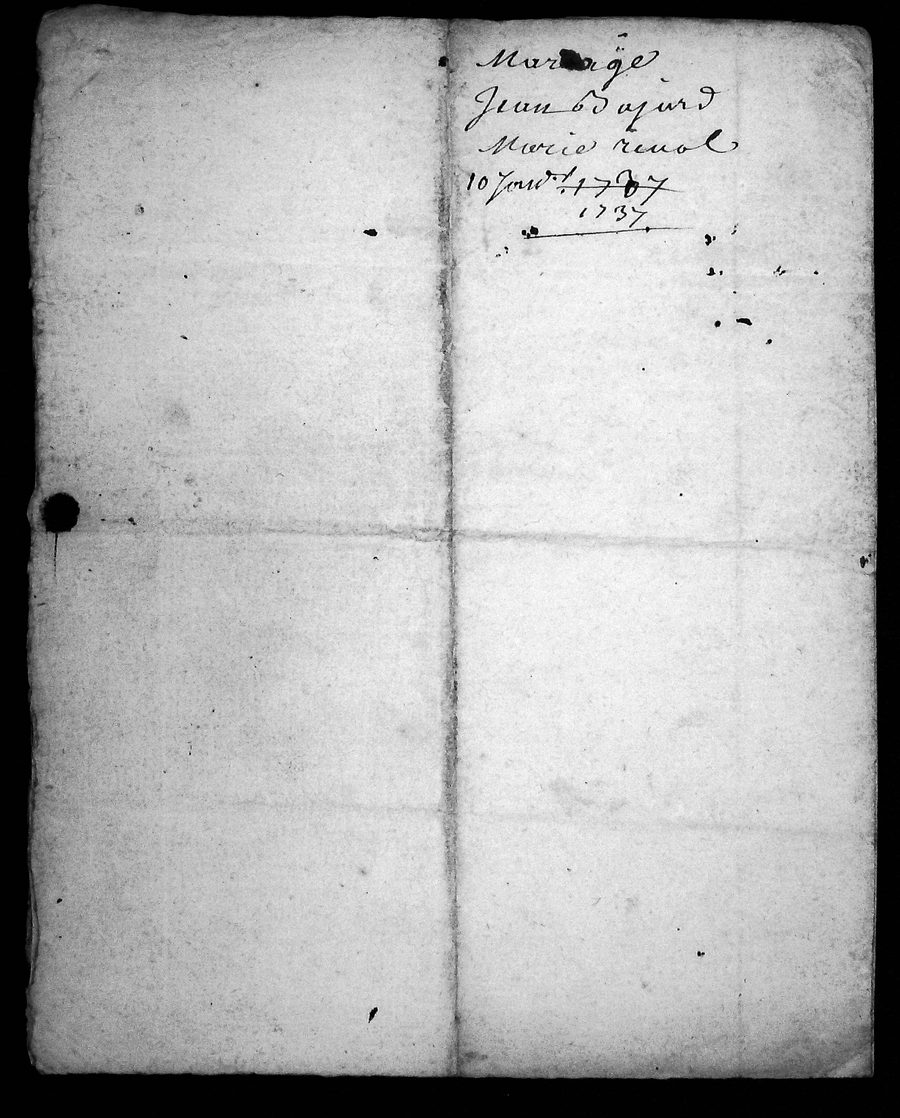 Mariage
Jean Bajard
Marie renol
10 Janv.r 1737
1737